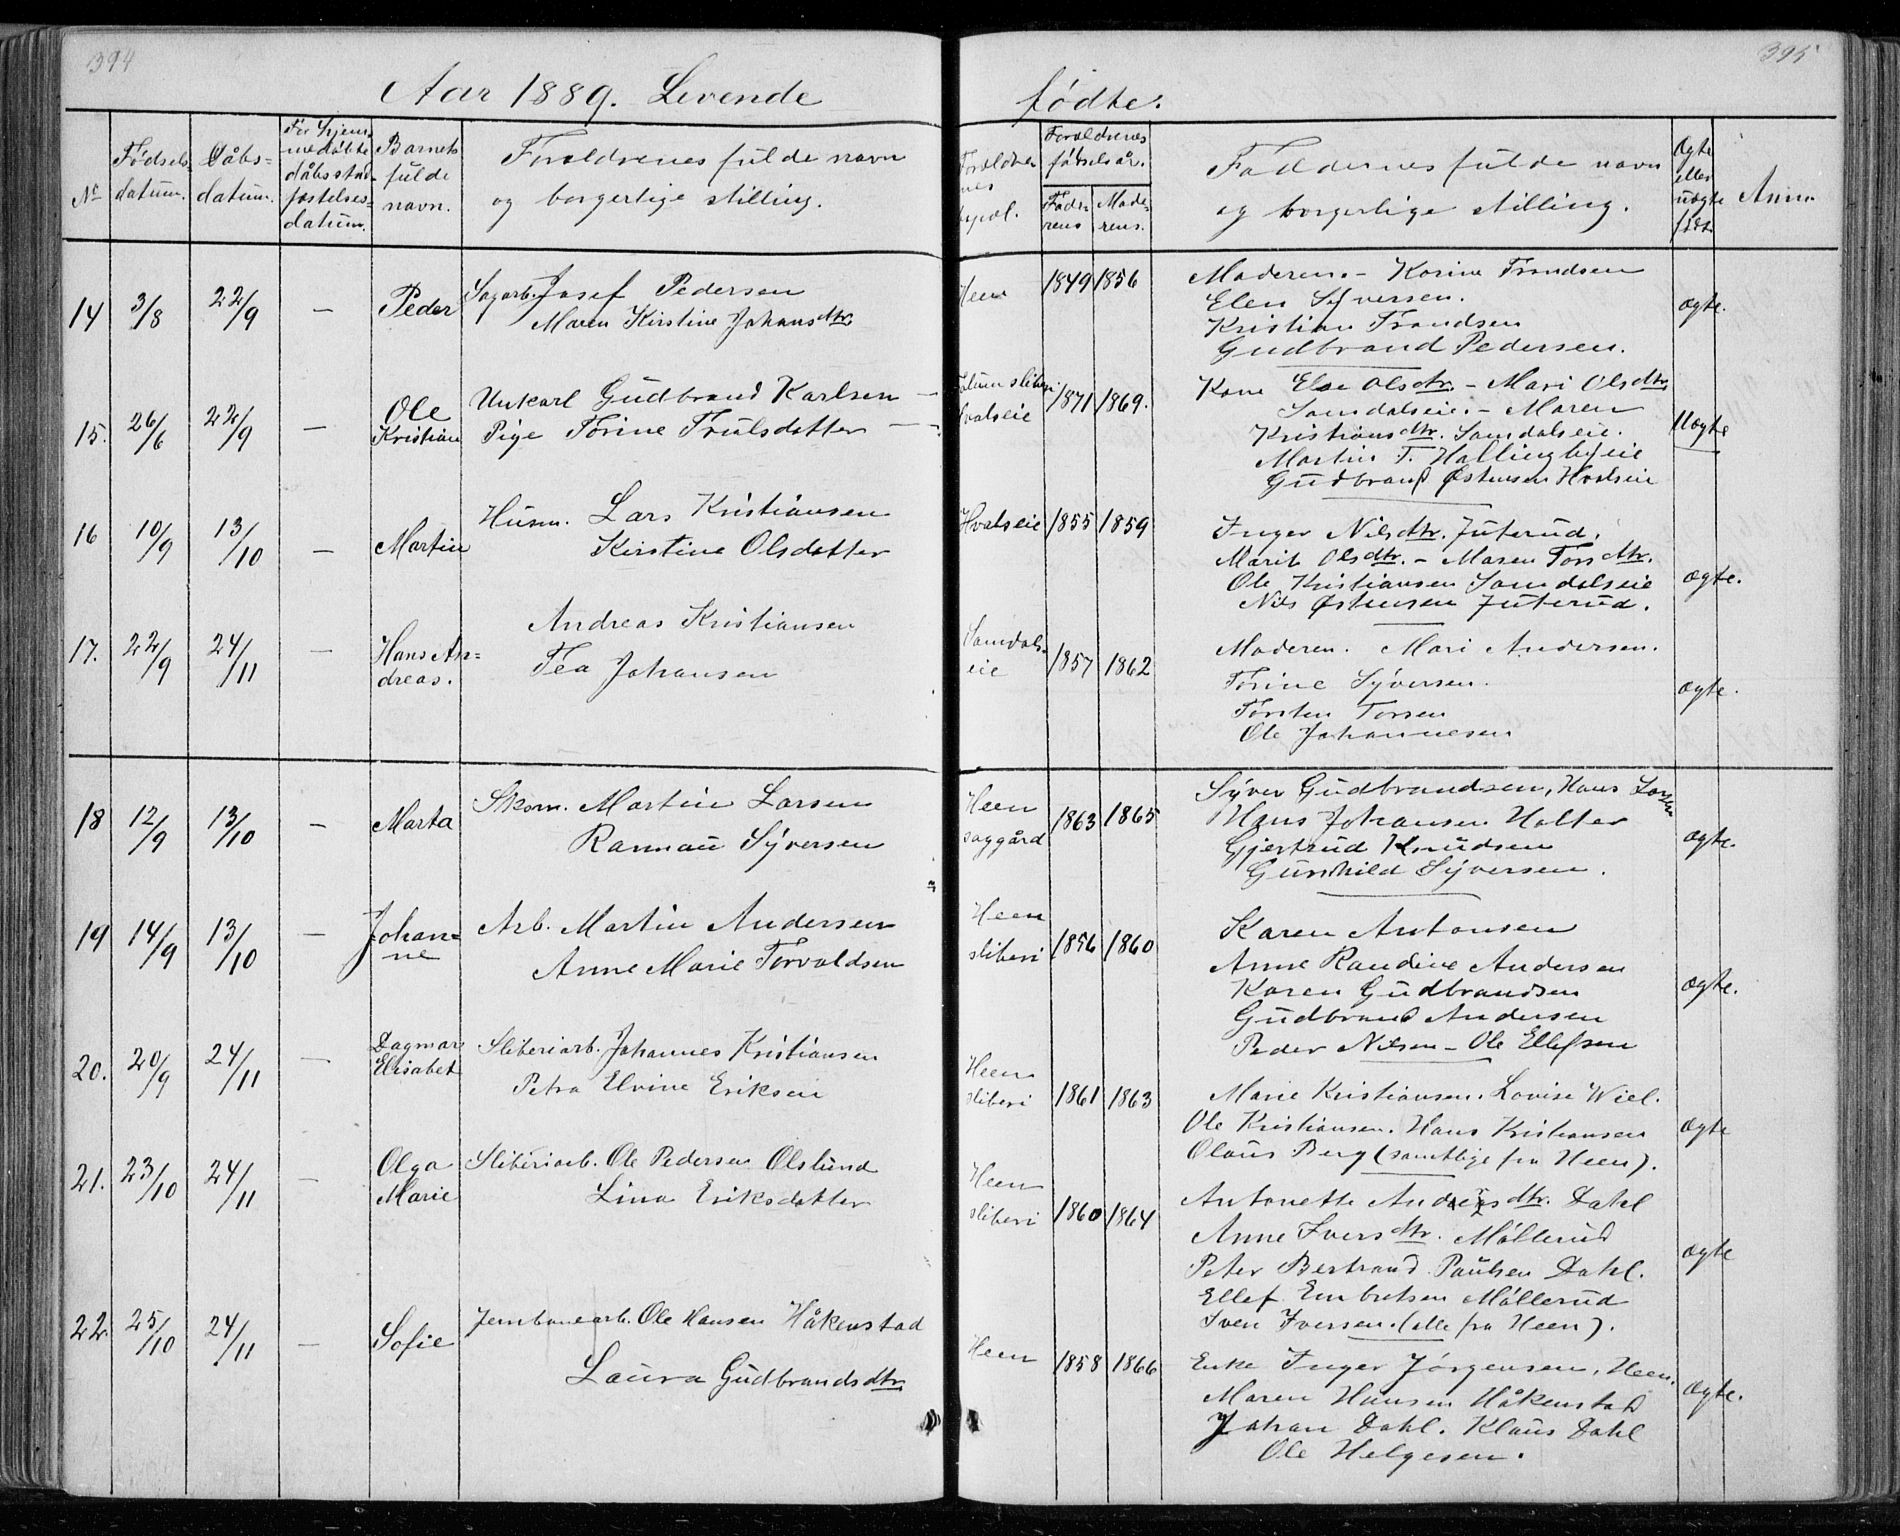 394
395
Aar 1889. Levende fødte.
No
Fødsels-
datum.
Dåbs-
datum.
For hjem-
medøbte
dåbsstad-
fæstelses-
datum.
Barnets
fulde
navn.
Forældrenes fulde navn
og borgerlige stilling.
Foræld-
nes
Forældrenes
fødselsår.
Fade-
rens
Mode-
rens.
Faddernes fulde navn
og borgerlige stilling.
Ægte
eller
uægte
født.
Anm.
14
3/8
22/9
—
Peder
Sagarb. Josef Pedersen
Maren Kirstine Johansdtr.
Heen
1849
1856
Moderen. - Karine Frandsen
Elen Syversen.
Kristian Frandsen
Gudbrand Pedersen.
ægte.
15.
26/6
22/9
—
Ole
Kristian
Unkarl Gudbrand Karlsen —
Pige Torine Trulsdatter —
Hvalseie
1871
1869.
Kone Else Olsdtr. - Mari Olsdtr.
Samdalseie. - Maren
Kristiansdtr. Samdalseie.
Martin T. Hallingbyeie
Gudbrand Østensen Hvalseie
Uægte
16
10/9
13/10
—
Martin
Husm. Lars Kristiansen
Kirstine Olsdatter
Hvalseie
1855
1859
Inger Nilsdtr. Juterud.
Marit Olsdtr. - Maren Torsdtr.
Ole Kristiansen Samdalseie
Nils Østensen Juterud.
ægte.
17.
22/9
24/11
—
Hans An-
dreas.
Andreas Kristiansen
Tea Johansen
Samdals-
eie
1857
1862
Moderen. Mari Andersen.
Torine Syversen.
Torsten Torsen
Ole Johannesen
ægte.
18
12/9
13/10
—
Marta
Skom. Martin Larsen
Rannau Syversen
Heen
saggård
1863
1865
Syver Gudbrandsen, Hans Larsen
Hans Johansen Holter
Gjertrud Knudsen
Gunhild Syversen.
ægte.
19
14/9
13/10
—
Johan-
ne
Arb. Martin Andersen
Anne Marie Torvaldsen
Heen
sliberi
1856
1860
Karen Antonsen
Anne Randine Andersen
Karen Gudbrandsen
Gudbrand Andersen
Peder Nilsen - Ole Ellefsen
ægte.
20.
20/9
24/11
—
Dagmar
Elisabet
Sliberiarb. Johannes Kristiansen
Petra Elvine Eriksen
Heen
sliberi
1861
1863
Marie Kristiansen. Lovise Wiel.
Ole Kristiansen. Hans Kristiansen
Olaus Berg (samtlige fra Heen).
ægte
21.
23/10
24/11
Olga
Marie
Sliberiarb. Ole Pedersen Olslund
Lina Eriksdatter
Heen
sliberi
1860
1864
Antonette Andersdtr. Dahl
Anne Iversdtr. Møllerud
Peter Bertrand Paulsen Dahl.
Ellef Embretsen Møllerud
Iven Iversen. (alle fra Heen).
ægte
22.
25/10
24/11
—
Sofie
Jernbanearb. Ole Hansen Håkenstad
Laura Gudbrandsdtr.
Heen
1858
1866
Enke Inger Jørgensen, Heen.
Maren Hansen Håkenstad
Johan Dahl. Klaus Dahl
Ole Helgesen.
ægte.